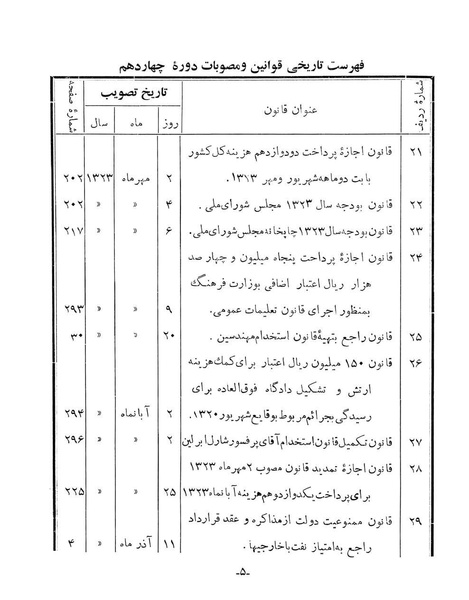 فهرست تاریخی قوانین ومصوبات دورهٔ چهاردهم
شمارهٔ ردیف عنوان قانون تاریخ تصویب شمارهٔ صفحه
روز ماه سال
۲۱ قانون اجازهٔ پرداخت دودوازدهم هزینه کل کشور
بابت دوماهه شهریور ومهر ۱۳۱۳. ۲ مهرماه ۱۳۲۳ ۲۰۲
۲۲ قانون بودجه سال ۱۳۲۳ مجلس شورای ملی. ۴ « « ۲۰۲
۲۳ قانون بودجه سال ۱۳۲۳ چاپخانه مجلس شورای ملی. ۶ « « ۲۱۷
۲۴ قانون اجازهٔ پرداحت پنجاه میلیون و چهار صد
هزار ریال اعتبار اضافی بوزارت فرهنگ
بمنظور اجرای قانون تعلیمات عمومی. ۹ « « ۲۹۳
۲۵ قانون راجع بتهیهٔ قانون استخدام مهندسین. ۲۰ « « ۳۰
۲۶ قانون ۱۵۰ میلیون ریال اعتبار برای کمک هزینه
ارتش و تشکیل دادگاه فوق العاده برای
رسیدگی بجرائم مربوط بوقایع شهریور ۱۳۲۰. ۲ آبانماه « ۲۹۴
۲۷ قانون تکمیل قانون استخدام آقای پرفسور شارل ابرلین ۲ « « ۲۹۶
۲۸ قانون اجازهٔ تمدید قانون مصوب ۲مهرماه ۱۳۲۳
برای پرداخت یکدوازدهم هزینه آبانماه ۱۳۲۳ ۲۵ « « ۲۲۵
۲۹ قانون ممنوعیت دولت از مذاکره و عقد قرارداد
راجع به امتیاز نفت با خارجیها. ۱۱ آذر ماه « ۴
-۵-